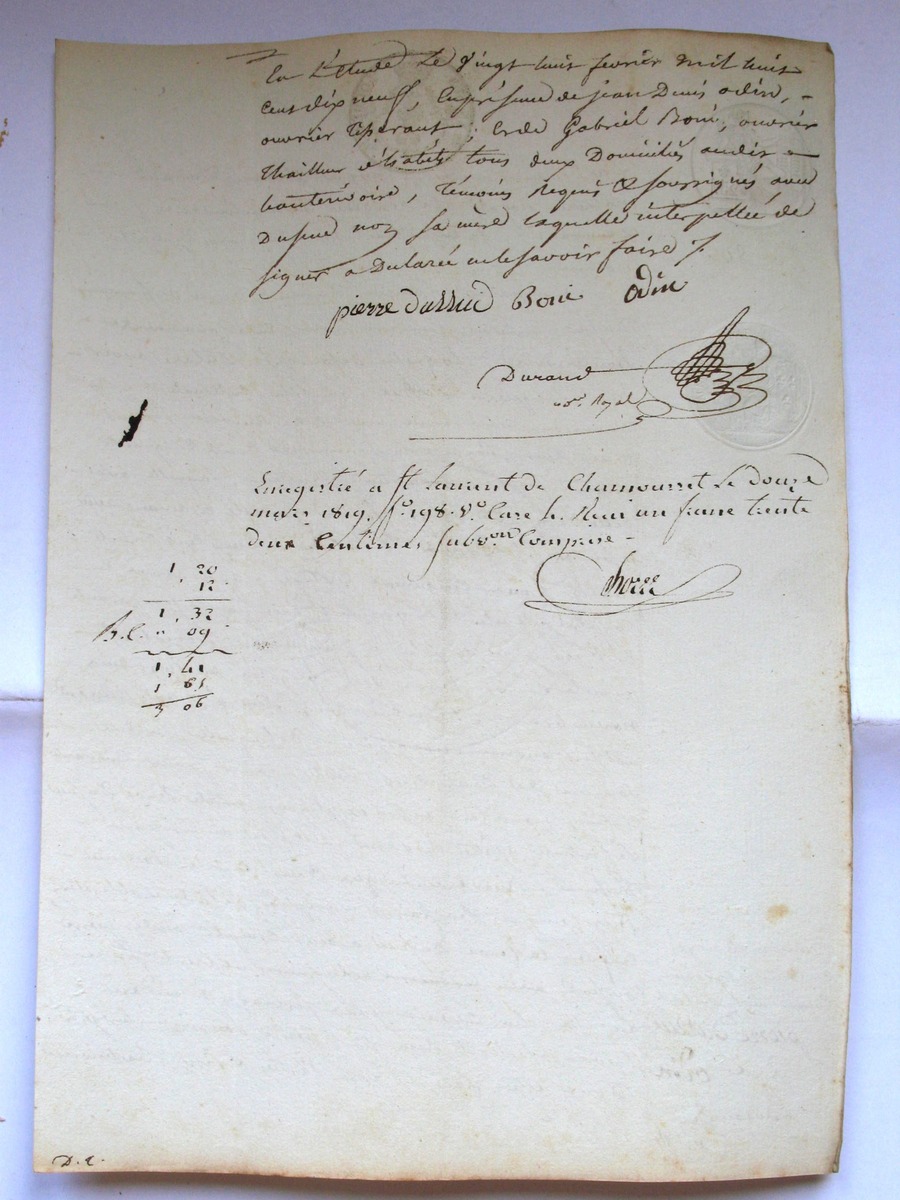 En L'étude Le vingt huit février mil huit
cent dix neuf, En présence de jean Denis odin,
ouvrier Tiserant, et de Gabriel Boni, ouvrier
thailleur d'habits tous deux Domiciliés audit
hauterivoire, Témoins Requis & soussignés avec
Dussuc non sa mère laquelle interpellée de
signer a Déclarée ne le savoir faire /.
pierre dussuc Boni Odin
Durand
not. Royal
Enregistré a St Laurent de Chamousset Le douze
mars 1819. fo. 198. Vo. Case 4. Reçu un franc trente
deux Centimes subvon Comprise -
1, 20
12
1, 32
B.C. " 09
1, 41
1 65
3 06
D. C.